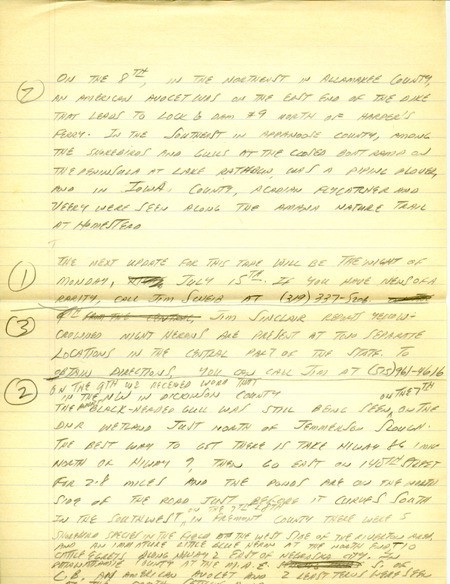 7
ON THE 8TH, IN THE NORTHEAST IN ALLAMAKEE COUNTY,
AN AMERICAN AVOCET WAS ON THE EAST END OF THE DIKE
THAT LEADS TO LOCK & DAM #9 NORTH OF HARPER'S
FERRY. IN THE SOUTHEAST IN APPANOOSE COUNTY, AMONG
THE SHOREBIRDS AND GULLS AT THE CLOSED BOAT RAMP ON
THE PENINSULA AT LAKE RATHBUN, WAS A PIPING PLOVER,
AND IN IOWA COUNTY, ACADIAN FLYCATCHER AND
VEERY WERE SEEN ALONG THE AMANA NATURE TRAIL
AT HOMESTEAD
1
THE NEXT UPDATE FOR THIS TAPE WILL BE THE NIGHT OF
MONDAY, JULY 15TH. IF YOU HAVE NEWS OF A
RARITY, CALL JIM AT (319) 337-
3
JIM SINCLAIR REPORT YELLOW-
CROWNED NIGHT HERONS ARE PRESENT AT TWO SEPARATE
LOCATIONS IN THE CENTRAL PART OF THE STATE. TO
OBTAIN DIRECTIONS, YOU CAN CALL JIM AT (515) 961-4616
2
ON THE 9TH WE RECEIVED WORD THAT
IN THE NW IN DICKINSON COUNTY ON THE 7TH
THE BLACK-HEADED GULL WAS STILL BEING SEEN, ON THE
DNR WETLAND JUST NORTH OF JEMMERSON SLOUGH.
THE BEST WAY TO GET THERE IS TAKE HIWAY 86 1 MILE
NORTH OF HIWAY 9, THEN GO EAST ON 140TH STREET
FOR 2.8 MILES AND THE PONDS ARE ON THE NORTH
SIDE OF THE ROAD JUST BEFORE IT CURVES SOUTH
ON THE 7TH
IN THE SOUTHWEST, IN FREMONT COUNTY THERE WERE 5
SHOREBIRD SPECIES IN THE FIELD AT THE WEST SIDE OF THE RIVERTON AREA,
AND AN IMMATURE LITTLE BLUE HERON AT THE NORTH END, 10
CATTLE EGRETS ALONG HIWAY 2 EAST OF NEBRASKA CITY. IN
POTTAWATTAMIE COUNTY AT THE M.A.E. S. OF
C.B., AN AMERICAN AVOCET AND 2 LEAST TERNS WERE SEEN